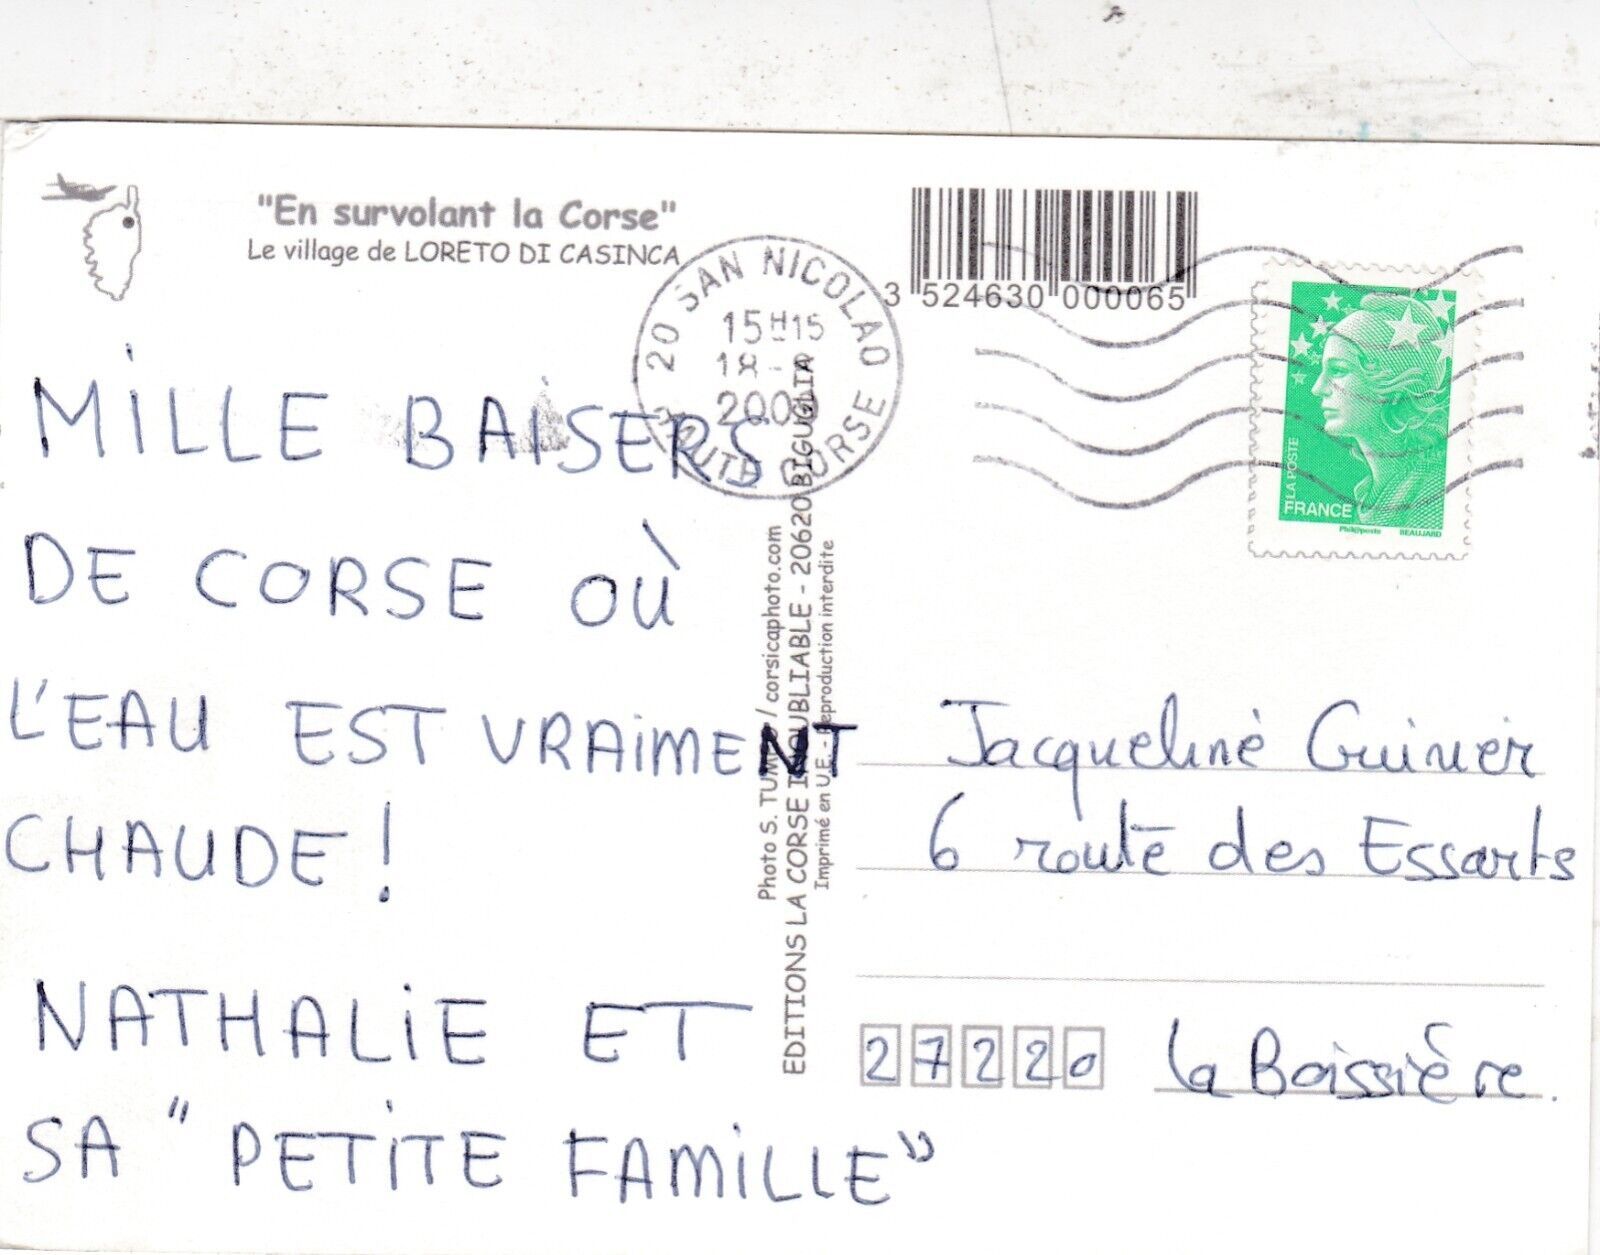 "En survolant la Corse"
Le village de LORETO DI CASINCA
20 SAN NICOLAO
15H15
HAUTE CORSE
3 524630 000065
LA POSTE
FRANCE
Phil@poste
BEAUJARD
MILLE BAISERS
DE CORSE OÙ
L'EAU EST VRAIMENT
CHAUDE !
NATHALIE ET
SA "PETITE FAMILLE"
Photo S. / corsicaphoto.com
EDITIONS LA CORSE INOUBLIABLE - 20620 BIGUGLIA
Imprimé en U.E. - Reproduction interdite
Jacqueline
6 route des Essarts
27220 la Boissière.